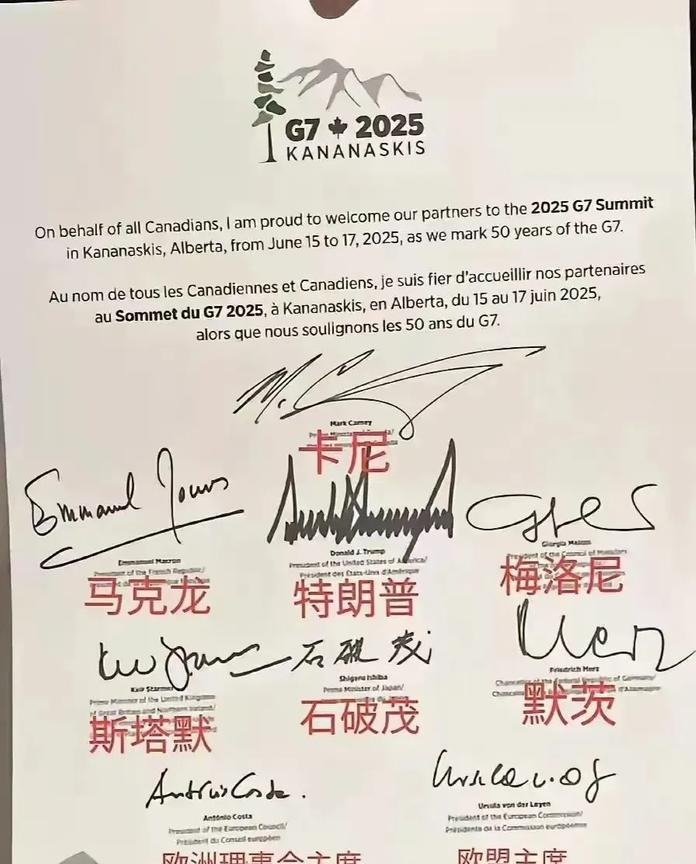 G7 2025
KANANASKIS
On behalf of all Canadians, I am proud to welcome our partners to the 2025 G7 Summit
in Kananaskis, Alberta, from June 15 to 17, 2025, as we mark 50 years of the G7.
Au nom de tous les Canadiennes et Canadiens, je suis fier d'accueillir nos partenaires
au Sommet du G7 2025, à Kananaskis, en Alberta, du 15 au 17 juin 2025,
alors que nous soulignons les 50 ans du G7.
Mark Carney
卡尼
Emmanuel Macron
President of the French Republic/
马克龙
Donald J. Trump
President of the United States of America/
Président des États-Unis d'Amérique
特朗普
Giorgia Meloni
President of the Council of Ministers
梅洛尼
Keir Starmer
Prime Minister of the United Kingdom
of Great Britain and Northern Ireland/
斯塔默
石破茂
Shigeru Ishiba
Prime Minister of Japan/
石破茂
Friedrich Merz
Chancellor of the Federal Republic of Germany/
默茨
António Costa
President of the European Council/
Président du Conseil européen
欧洲理事会主席
Ursula von der Leyen
President of the European Commission/
Présidente de la Commission européenne
欧盟主席